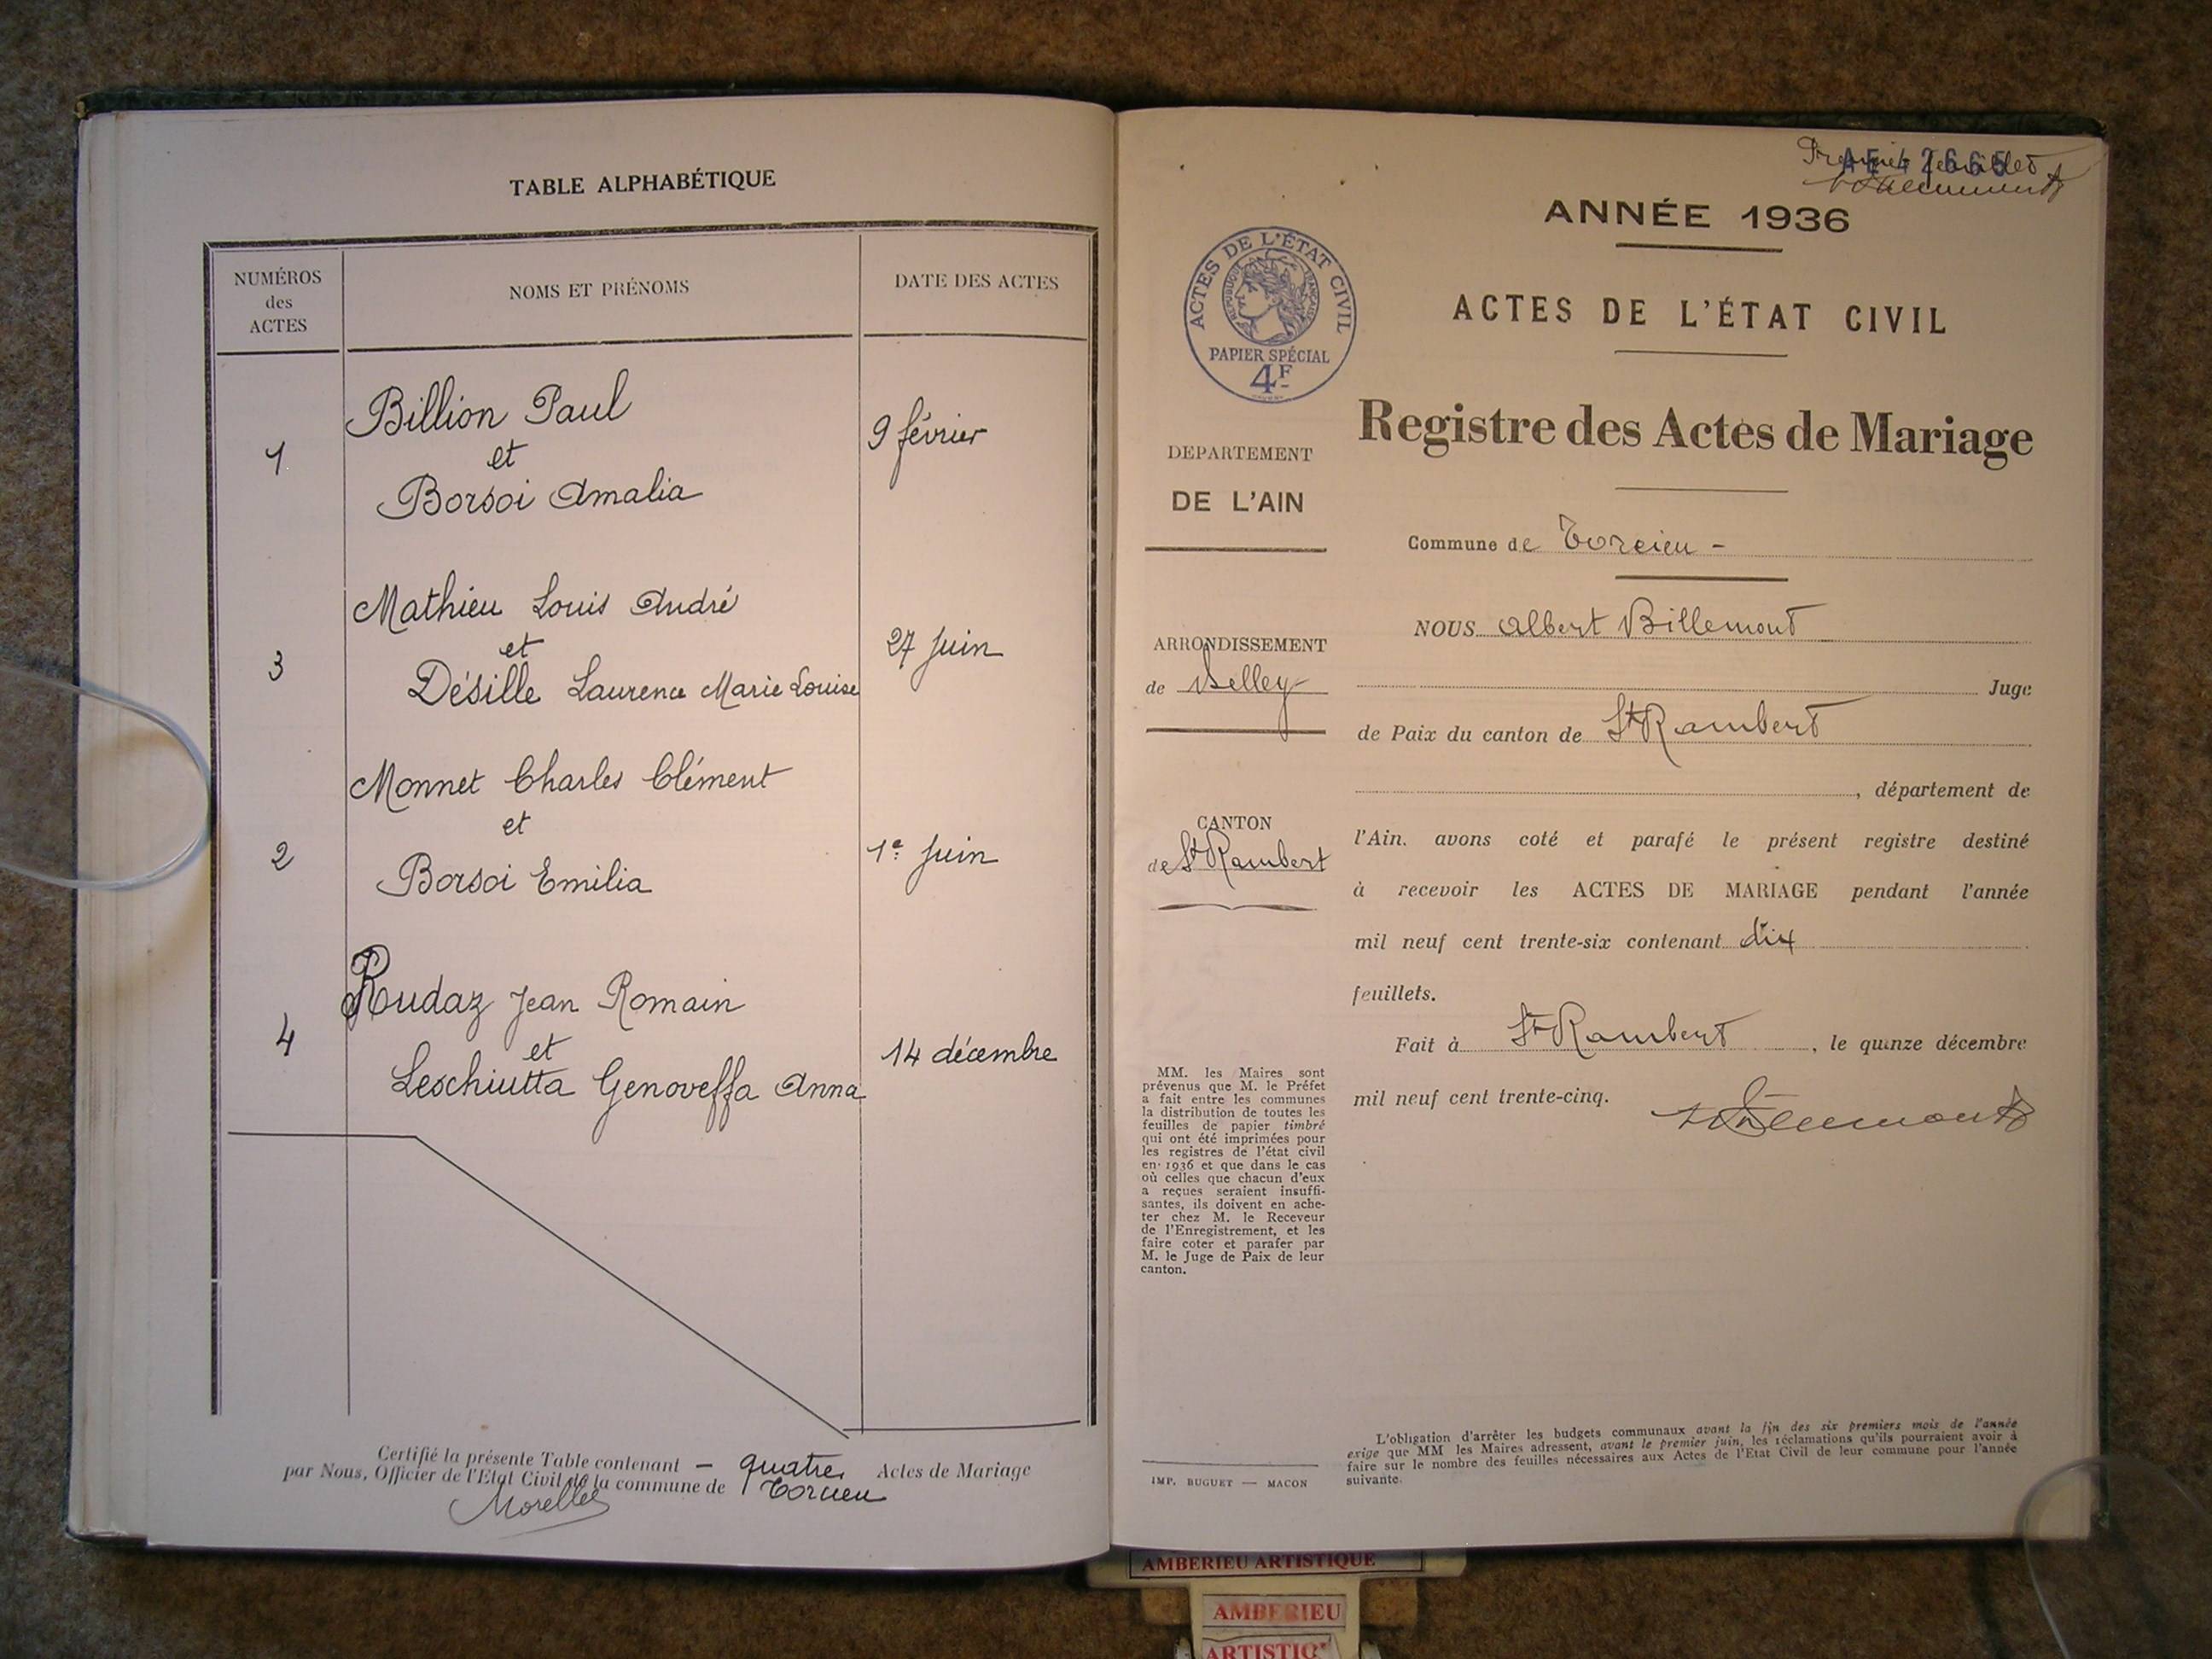 TABLE ALPHABÉTIQUE
NUMÉROS
des
ACTES
NOMS ET PRÉNOMS
DATE DES ACTES
Billion Paul
1
et
9 février
Borsoi Amalia
Mathieu Louis André
3
et
27 Juin
Désille Laurence Marie Louise
Monnet Charles Clément
2
et
1e Juin
Borsoi Emilia
Rudaz Jean Romain
4
et
14 décembre
Leschiutta Genoveffa Anna
Certifié la présente Table contenant – quatre Actes de Mariage
par Nous, Officier de l'Etat Civil de la commune de Torcieu
Morellet
Premier feuillet
AE 42665
ANNÉE 1936
ACTES DE L'ÉTAT CIVIL
REPUBLIQUE FRANÇAISE
PAPIER SPÉCIAL
4F
ACTES DE L'ÉTAT CIVIL
Registre des Actes de Mariage
DEPARTEMENT
DE L'AIN
ARRONDISSEMENT
de Belley
CANTON
de St Rambert
MM. les Maires sont
prévenus que M. le Préfet
a fait entre les communes
la distribution de toutes les
feuilles de papier timbré
qui ont été imprimées pour
les registres de l'état civil
en 1936 et que dans le cas
où celles que chacun d'eux
a reçues seraient insuffi-
santes, ils doivent en ache-
ter chez M. le Receveur
de l'Enregistrement, et les
faire coter et parafer par
M. le Juge de Paix de leur
canton.
IMP. BUGUET — MACON
Commune de Torcieu -
NOUS Albert Billemont
Juge
de Paix du canton de St Rambert
, département de
l'Ain. avons coté et parafé le présent registre destiné
à recevoir les ACTES DE MARIAGE pendant l'année
mil neuf cent trente-six contenant dix
feuillets.
Fait à St Rambert, le quinze décembre
mil neuf cent trente-cinq.
Billemont
L'obligation d'arrêter les budgets communaux avant la fin des six premiers mois de l'année
exige que MM les Maires adressent, avant le premier juin, les réclamations qu'ils pourraient avoir à
faire sur le nombre des feuilles nécessaires aux Actes de l'Etat Civil de leur commune pour l'année
suivante.
AMBERIEU ARTISTIQUE
AMBERIEU